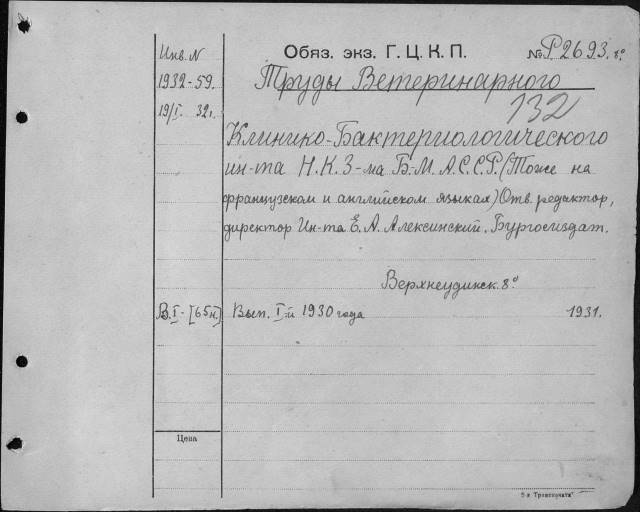 Инв. N Обяз. экз. Г. Ц. К. П. № Р2693. 8º
1932-59. Труды Ветеринарного
19/I. 32г. 132
Клинико-Бактериологического
ин-та Н.К.З-ма Б-М. А.С.С.Р. (Тоже на
французском и английском языках) Отв. редактор,
директор Ин-та Е. А. Алексинский. Бургосиздат.
Верхнеудинск. 8º
В. I- [65н] Вып. I-й 1930 года 1931.
Цена
5-я Транспечати"